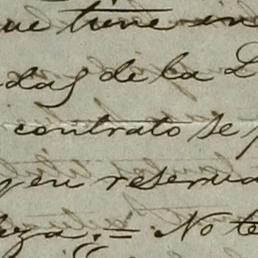 ue tiene en
das de la L
contrato se p
en reserva
eza.= No te